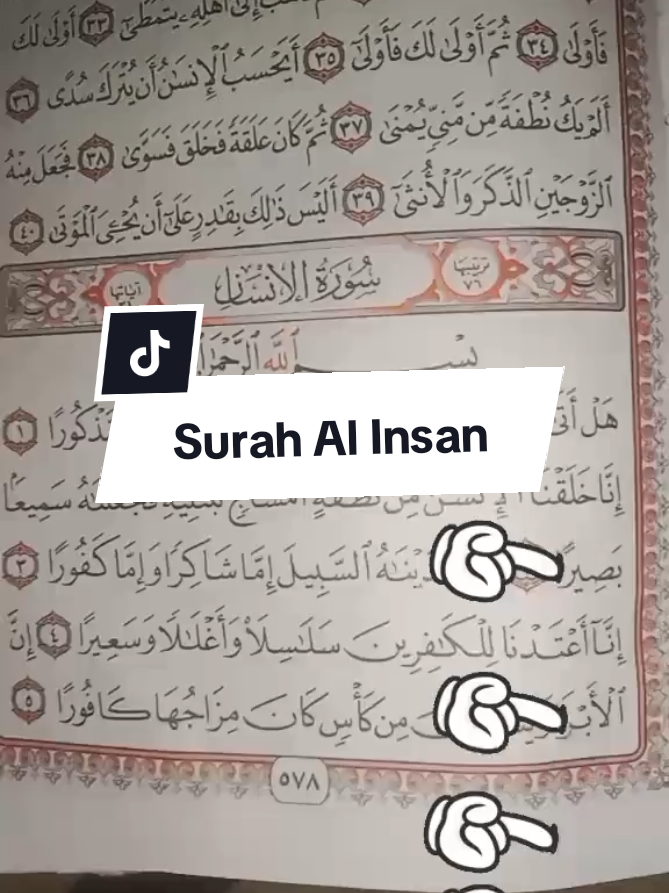 إِلَىٰ أَهْلِهِۦ يَتَمَطَّىٰٓ ٣٣ أَوْلَىٰ لَكَ
فَأَوْلَىٰ ٣٤ ثُمَّ أَوْلَىٰ لَكَ فَأَوْلَىٰٓ ٣٥ أَيَحْسَبُ ٱلْإِنسَـٰنُ أَن يُتْرَكَ سُدًى ٣٦
أَلَمْ يَكُ نُطْفَةً مِّن مَّنِىٍّ يُمْنَىٰ ٣٧ ثُمَّ كَانَ عَلَقَةً فَخَلَقَ فَسَوَّىٰ ٣٨ فَجَعَلَ مِنْهُ
ٱلزَّوْجَيْنِ ٱلذَّكَرَ وَٱلْأُنثَىٰٓ ٣٩ أَلَيْسَ ذَٰلِكَ بِقَـٰدِرٍ عَلَىٰٓ أَن يُحْـِۧىَ ٱلْمَوْتَىٰ ٤٠
ترتيبها ٧٦ سُورَةُ الإِنسَانِ آياتها
بِسْمِ ٱللَّهِ ٱلرَّحْمَـٰنِ
Surah Al Insan
هَلْ أَتَىٰ مَّذْكُورًا ١
إِنَّا خَلَقْنَا ٱلْإِنسَـٰنَ مِن نُّطْفَةٍ أَمْشَاجٍ نَّبْتَلِيهِ فَجَعَلْنَـٰهُ سَمِيعًۢا
بَصِيرًا ٱلسَّبِيلَ إِمَّا شَاكِرًا وَإِمَّا كَفُورًا ٣
إِنَّآ أَعْتَدْنَا لِلْكَـٰفِرِينَ سَلَـٰسِلَا۟ وَأَغْلَـٰلًا وَسَعِيرًا ٤ إِنَّ
ٱلْأَبْرَارَ مِن كَأْسٍ كَانَ مِزَاجُهَا كَافُورًا ٥
٥٧٨